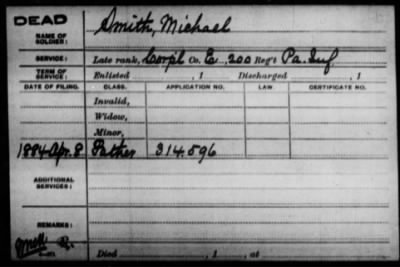 DEAD
NAME OF SOLDIER: Smith, Michael
SERVICE: Late rank, Corpl Co. E, 200 Reg't Pa. Inf
TERM OF SERVICE: Enlisted , 1 Discharged , 1
DATE OF FILING. CLASS. APPLICATION NO. LAW. CERTIFICATE NO.
Invalid,
Widow,
Minor,
1884 Apr. 8 Father 314.596
ADDITIONAL SERVICES:
REMARKS:
Died , 1 , at